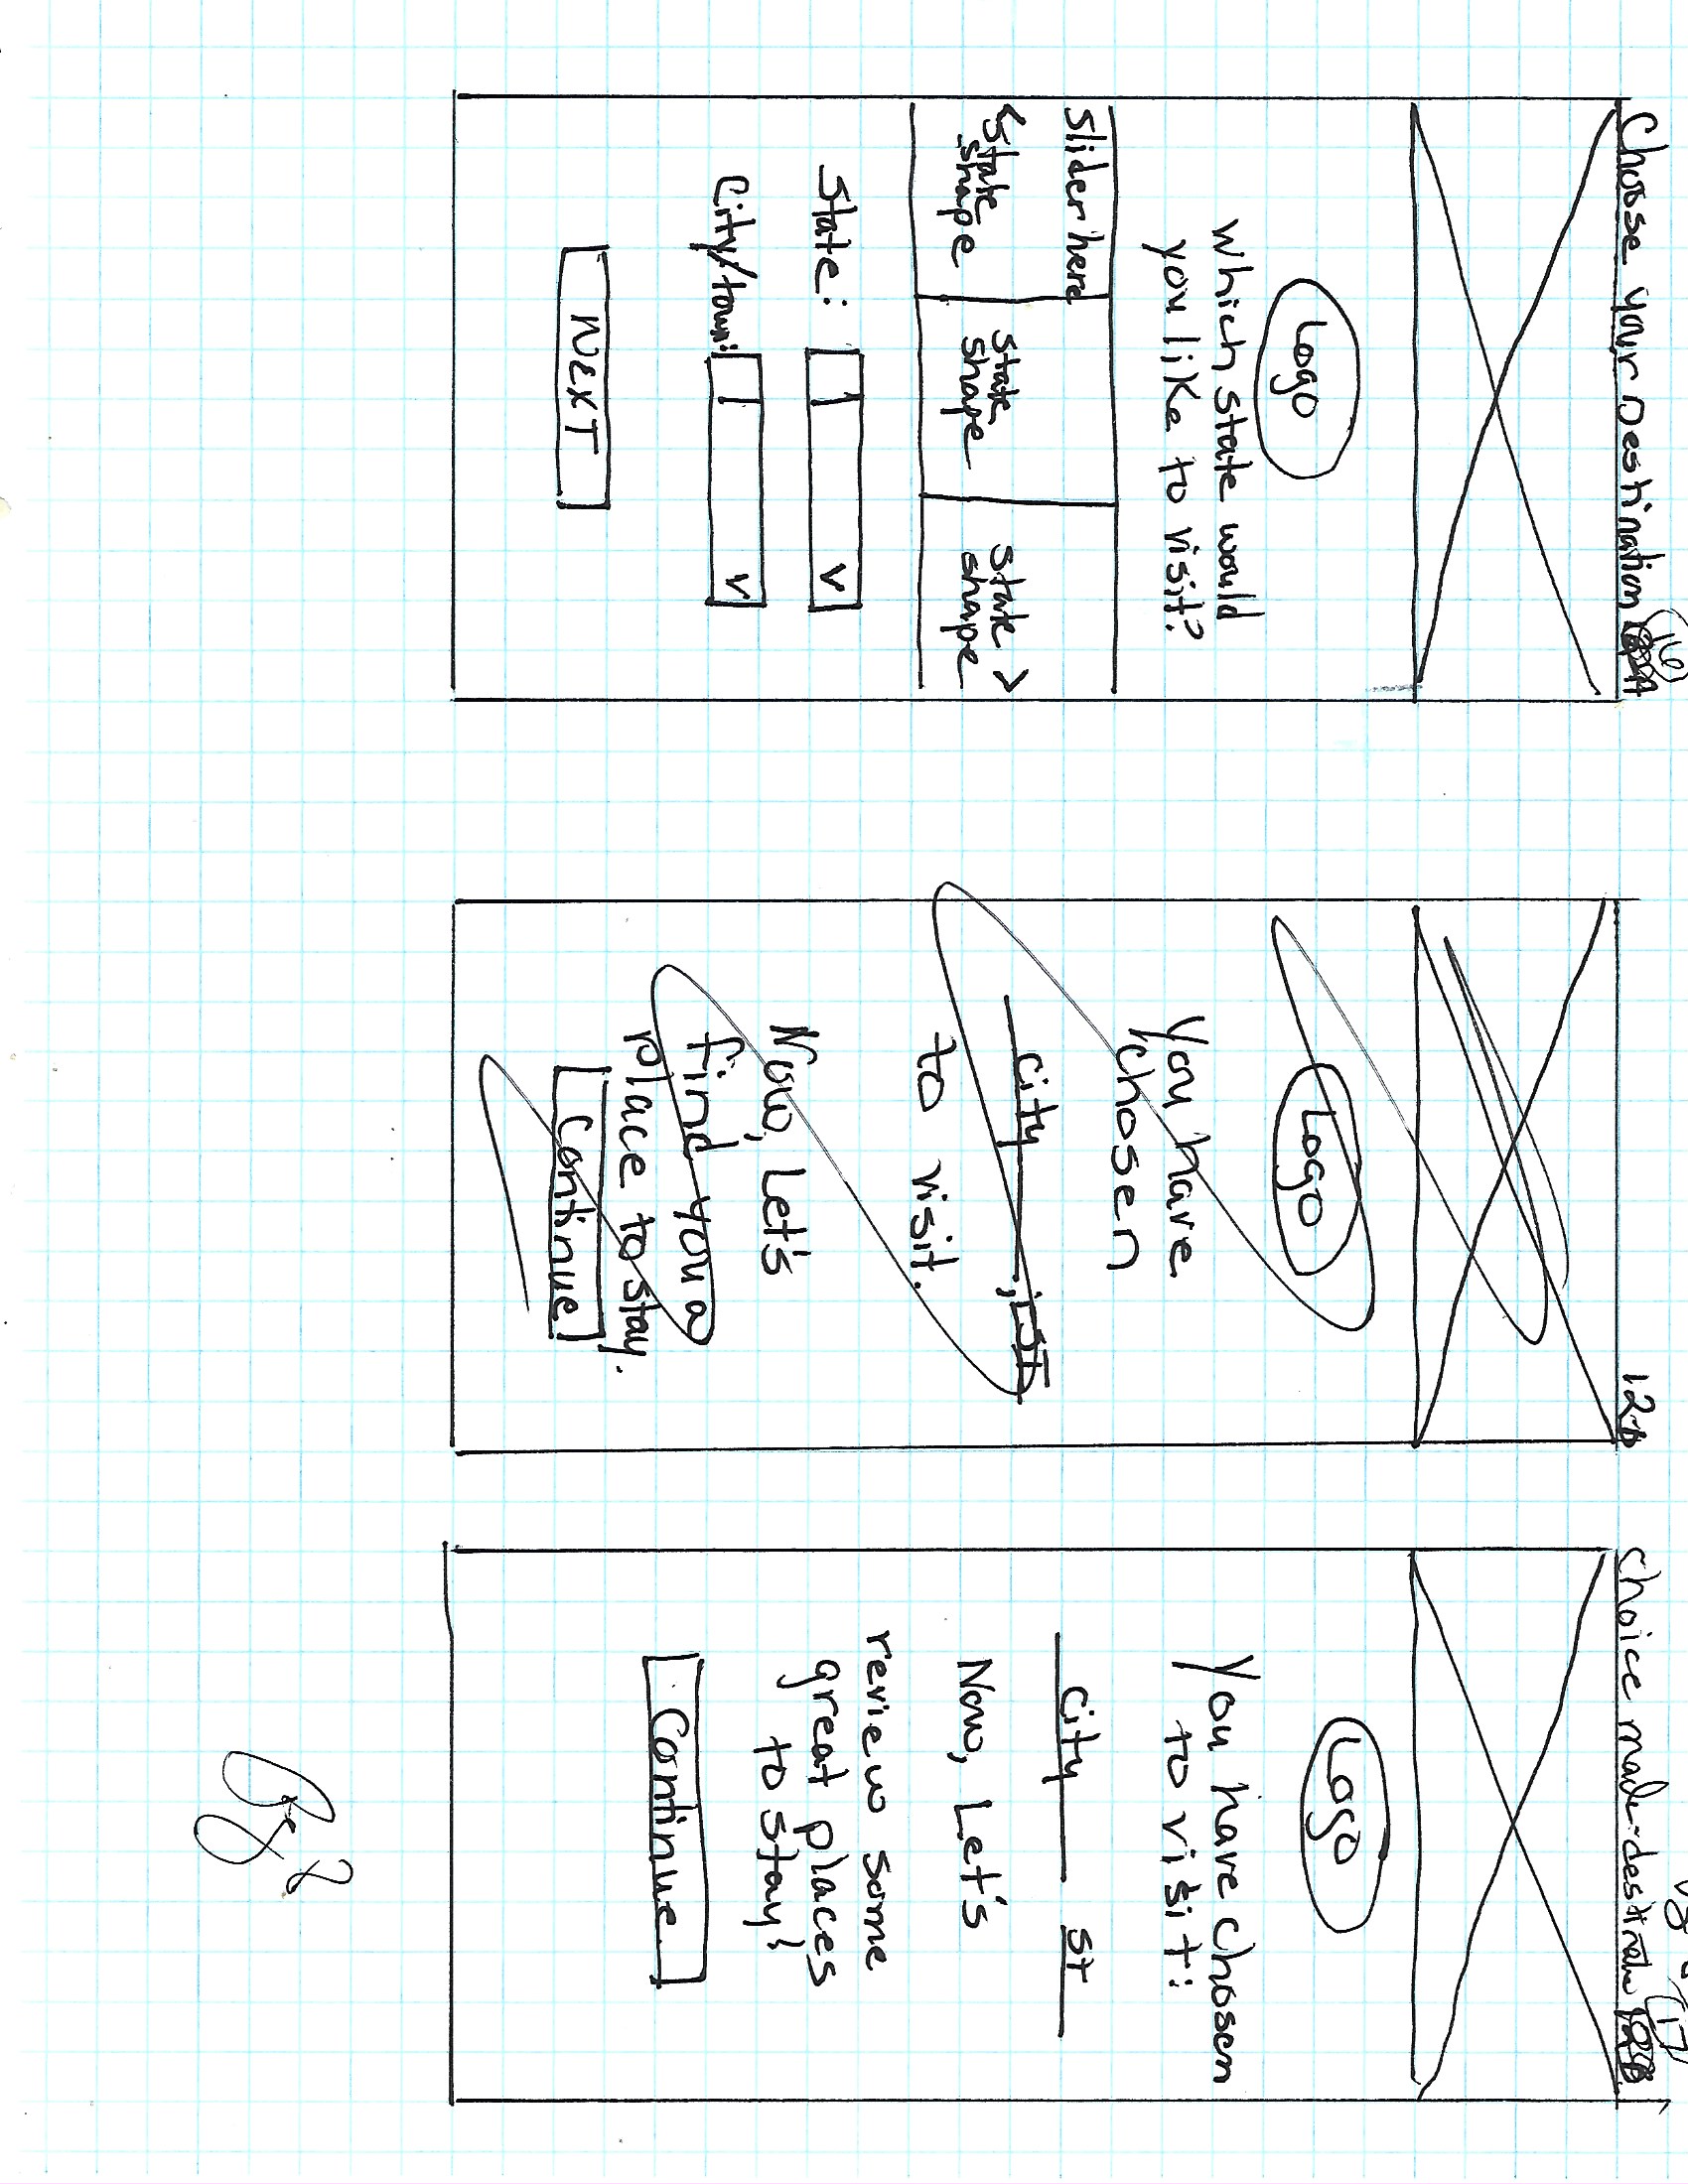 Choose your Destination
16
Logo
Which state would
you like to visit?
Slider here
< State
shape
State
shape
State >
shape
State:
V
City/town:
V
NEXT
12b
Logo
You have
chosen
City, ST
to visit.
Now, Let's
find you a
place to stay.
Continue
Choice made-
17
Logo
You have chosen
to visit:
City ST
Now, Let's
review some
great places
to stay!
Continue